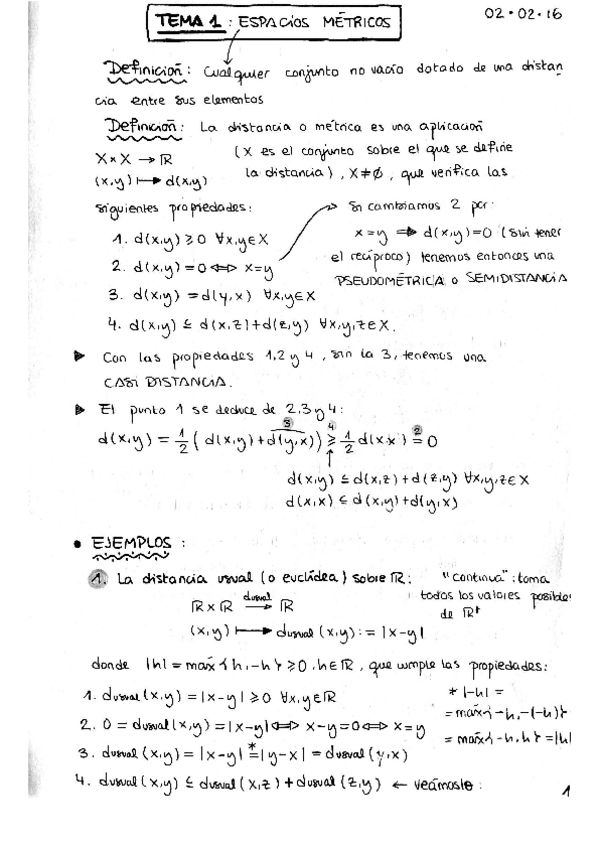 TEMA 1 : ESPACIOS MÉTRICOS
02·02·16
Definición: Cualquier conjunto no vacío dotado de una distan
cia entre sus elementos
Definición: La distancia o métrica es una aplicación
X×X → ℝ (X es el conjunto sobre el que se define
(x,y) ↦ d(x,y) la distancia), X≠∅, que verifica las
siguientes propiedades:
1. d(x,y) ≥ 0 ∀x,y∈X
2. d(x,y) = 0 ⟺ x=y
3. d(x,y) = d(y,x) ∀x,y∈X
4. d(x,y) ≤ d(x,z)+d(z,y) ∀x,y,z∈X.
Si cambiamos 2 por:
x=y ⟹ d(x,y)=0 (sin tener
el recíproco) tenemos entonces una
PSEUDOMÉTRICA o SEMIDISTANCIA
▶ Con las propiedades 1,2 y 4, sin la 3, tenemos una
CASI DISTANCIA.
▶ El punto 1 se deduce de 2,3 y 4:
③ ④ ②
d(x,y) = 1/2 (d(x,y)+d(y,x)) ≥ 1/2 d(x,x) = 0
↑
d(x,y) ≤ d(x,z)+d(z,y) ∀x,y,z∈X
d(x,x) ≤ d(x,y)+d(y,x)
• EJEMPLOS :
1. La distancia usual (o euclídea) sobre ℝ:
"continua": toma
todos los valores posibles
de ℝ⁺
ℝ×ℝ —dusual→ ℝ
(x,y) ↦ dusual (x,y) := |x-y|
donde |h| = máx{h,-h} ≥ 0, h∈ℝ, que cumple las propiedades:
1. dusual (x,y) = |x-y| ≥ 0 ∀x,y∈ℝ
2. 0 = dusual (x,y) = |x-y| ⟺ x-y=0 ⟺ x=y
3. dusual (x,y) = |x-y| =* |y-x| = dusual (y,x)
4. dusual (x,y) ≤ dusual (x,z) + dusual (z,y) ← veámoslo :
* |-h| =
= máx{-h,-(-h)}
= máx{-h,h} = |h|
1